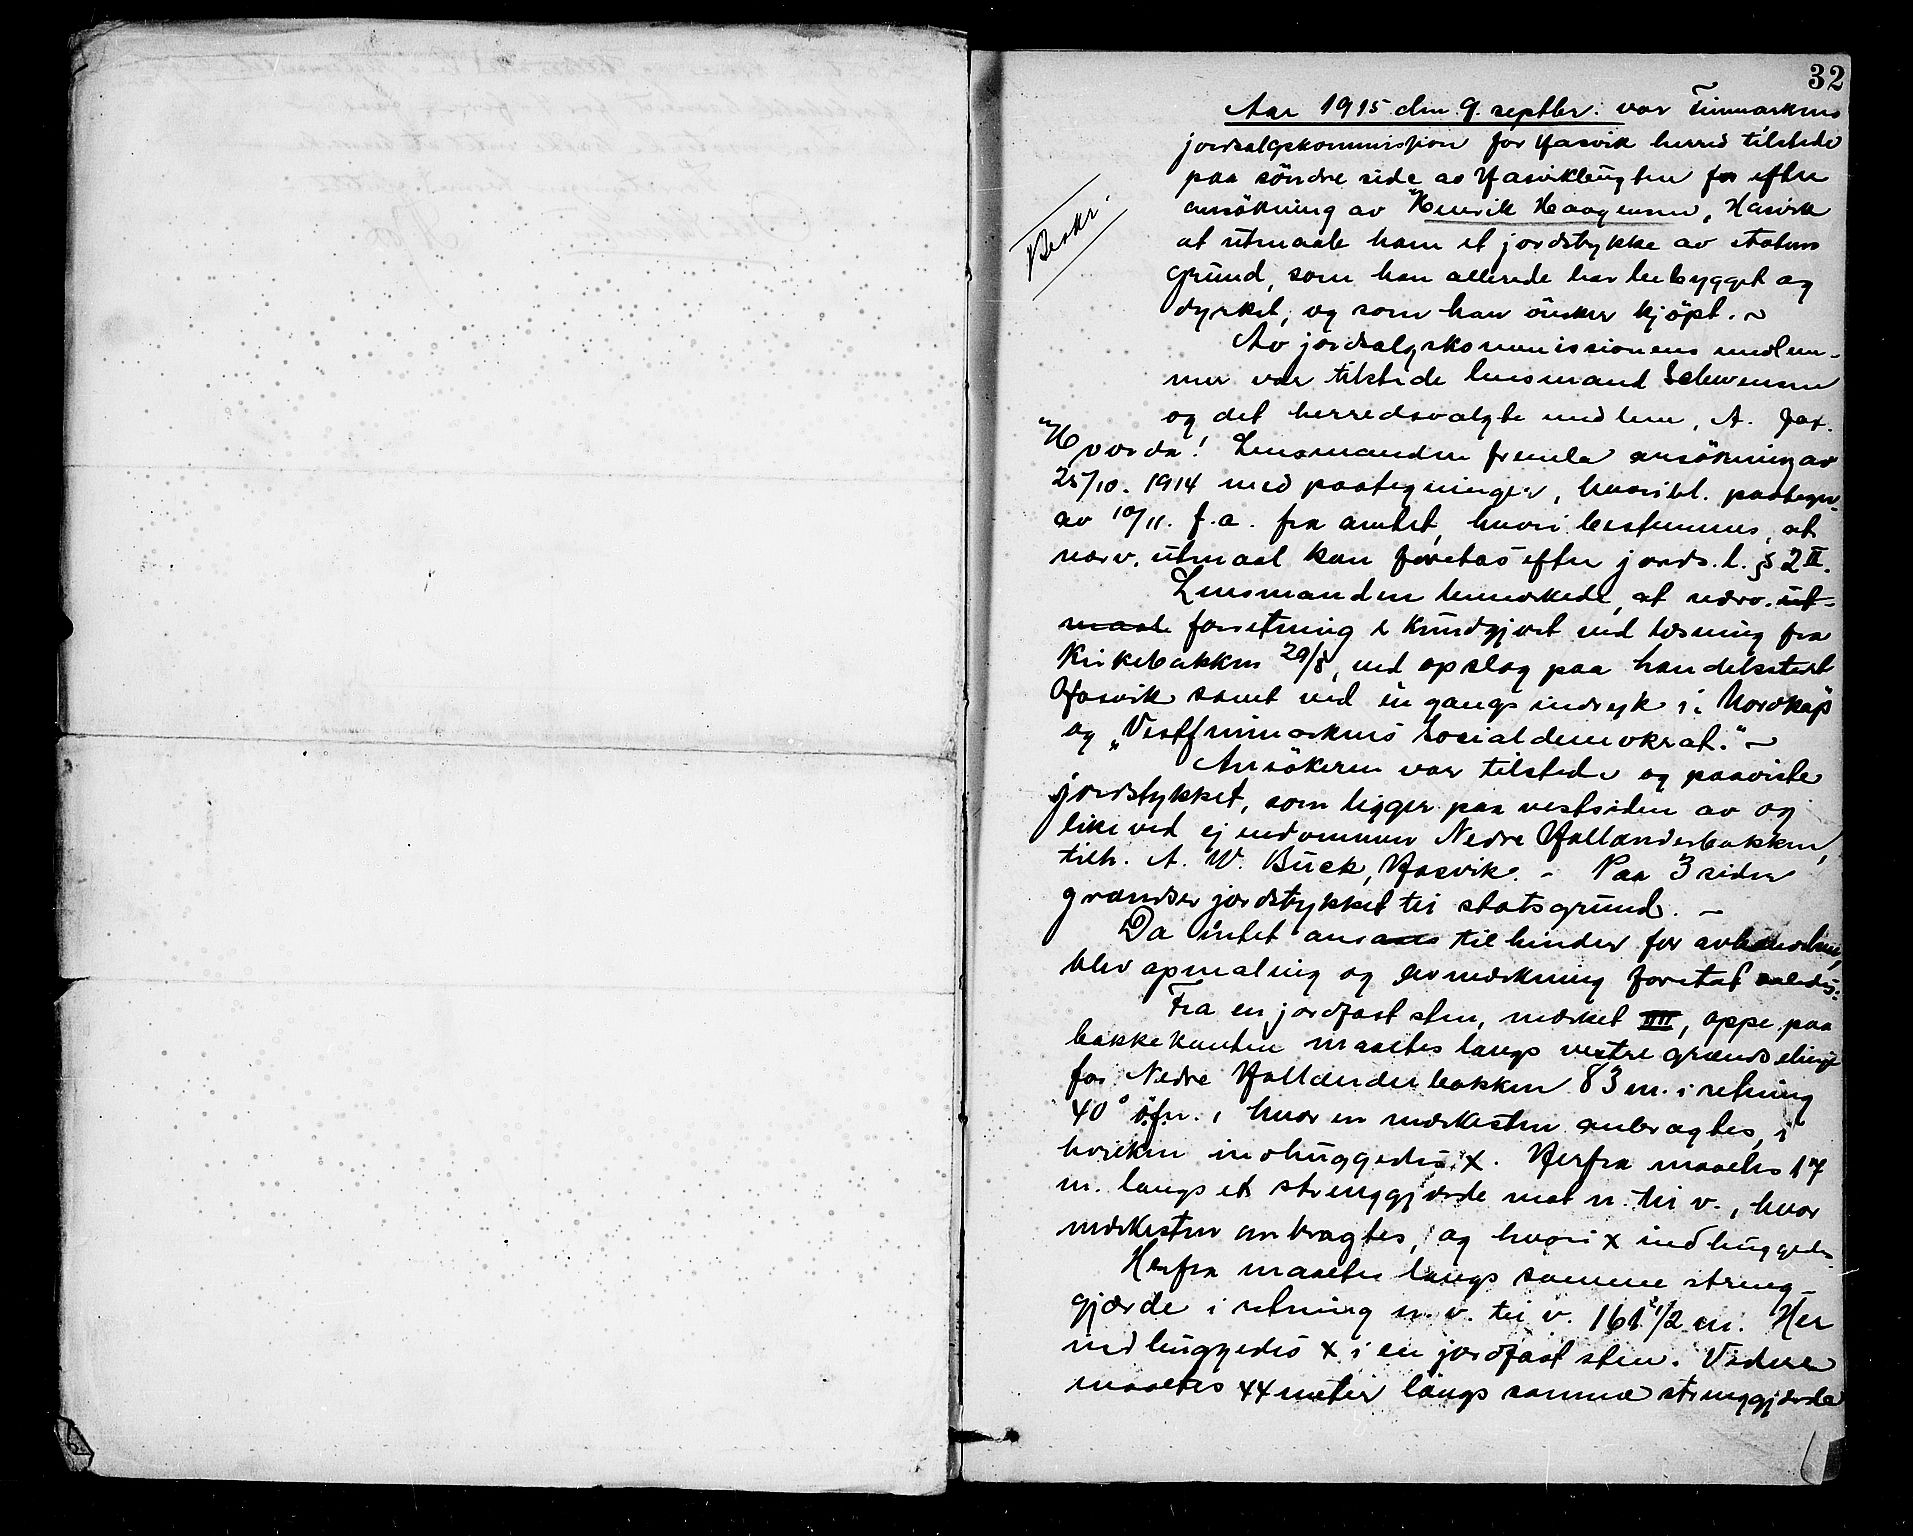 32
Aar 1915 den 9. septbr. var Finmarkens
jordsalgskommission for Hasvik herred tilstede
paa söndre side av Hasvikbugten for efter
ansökning av Henrik Haagensen, Hasvik
at utmaale ham et jordstykke av statens
grund, som han allerede har bebygget og
dyrket, og som han önsker kjöpt. ~
Beskr.
Av jordsalgskommissionens medlem-
mer var tilstede lensmand Schwensen
og det herredsvalgte medlem, A. Jak.
Hvorda! Lensmanden fremla ansökning av
25/10. 1914 med paategninger, hvoribl. paategn.
av 10/11. f.a. fra amtet, hvori bestemmes, at
nærv. utmaal kan foretas efter jords.l. § 2 II.
Lensmanden bemerkede, at nærv. ut-
maal forretning er kundgjort ved læsning fra
Kirkebakken 29/8, ved opslag paa handelsstedet
Hasvik samt ved en gangs indryk i Nordkap
og "Vestfinmarkens Socialdemokrat." ~
Ansökeren var tilstede og paaviste
jordstykket, som ligger paa vestsiden av og
like ved ejendommen Nedre Hollænderbakken,
tilh. A. W. Buck, Hasvik. - Paa 3 sider
grændser jordstykket til statsgrund. -
Da intet ansaaes til hinder for avhændelse,
blev opmaling og avmerkning foretat saaledes:
Fra en jordfast sten, merket IIII, oppe paa
bakkekanten maaltes langs vestre grændselinje
for Nedre Hollænderbakken 83 m. i retning
40° ö.f.n., hvor en merkesten anbragtes, i
hvilken indhuggedes X. Herfra maaltes 17
m. langs et strenggjerde mot n. til v., hvor
merkesten anbragtes, og hvori x indhuggedes
Herfra maaltes langs samme streng-
gjærde i retning n. v. til v. 161 1/2 m. Her
indhuggedes x i en jordfast sten. Videre
maaltes 44 meter langs samme strenggjerde